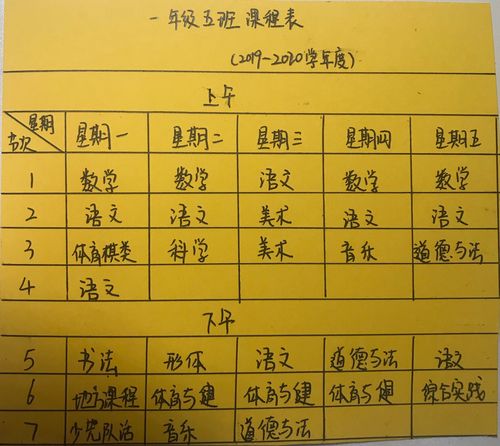 一年级五班 课程表
(2019-2020学年度)
上午
星期 节次 星期一 星期二 星期三 星期四 星期五
1 数学 数学 语文 数学 数学
2 语文 语文 美术 语文 语文
3 体育棋类 科学 美术 音乐 道德与法
4 语文
下午
5 书法 形体 语文 道德与法 语文
6 地方课程 体育与健 体育与健 体育与健 综合实践
7 少先队活 音乐 道德与法